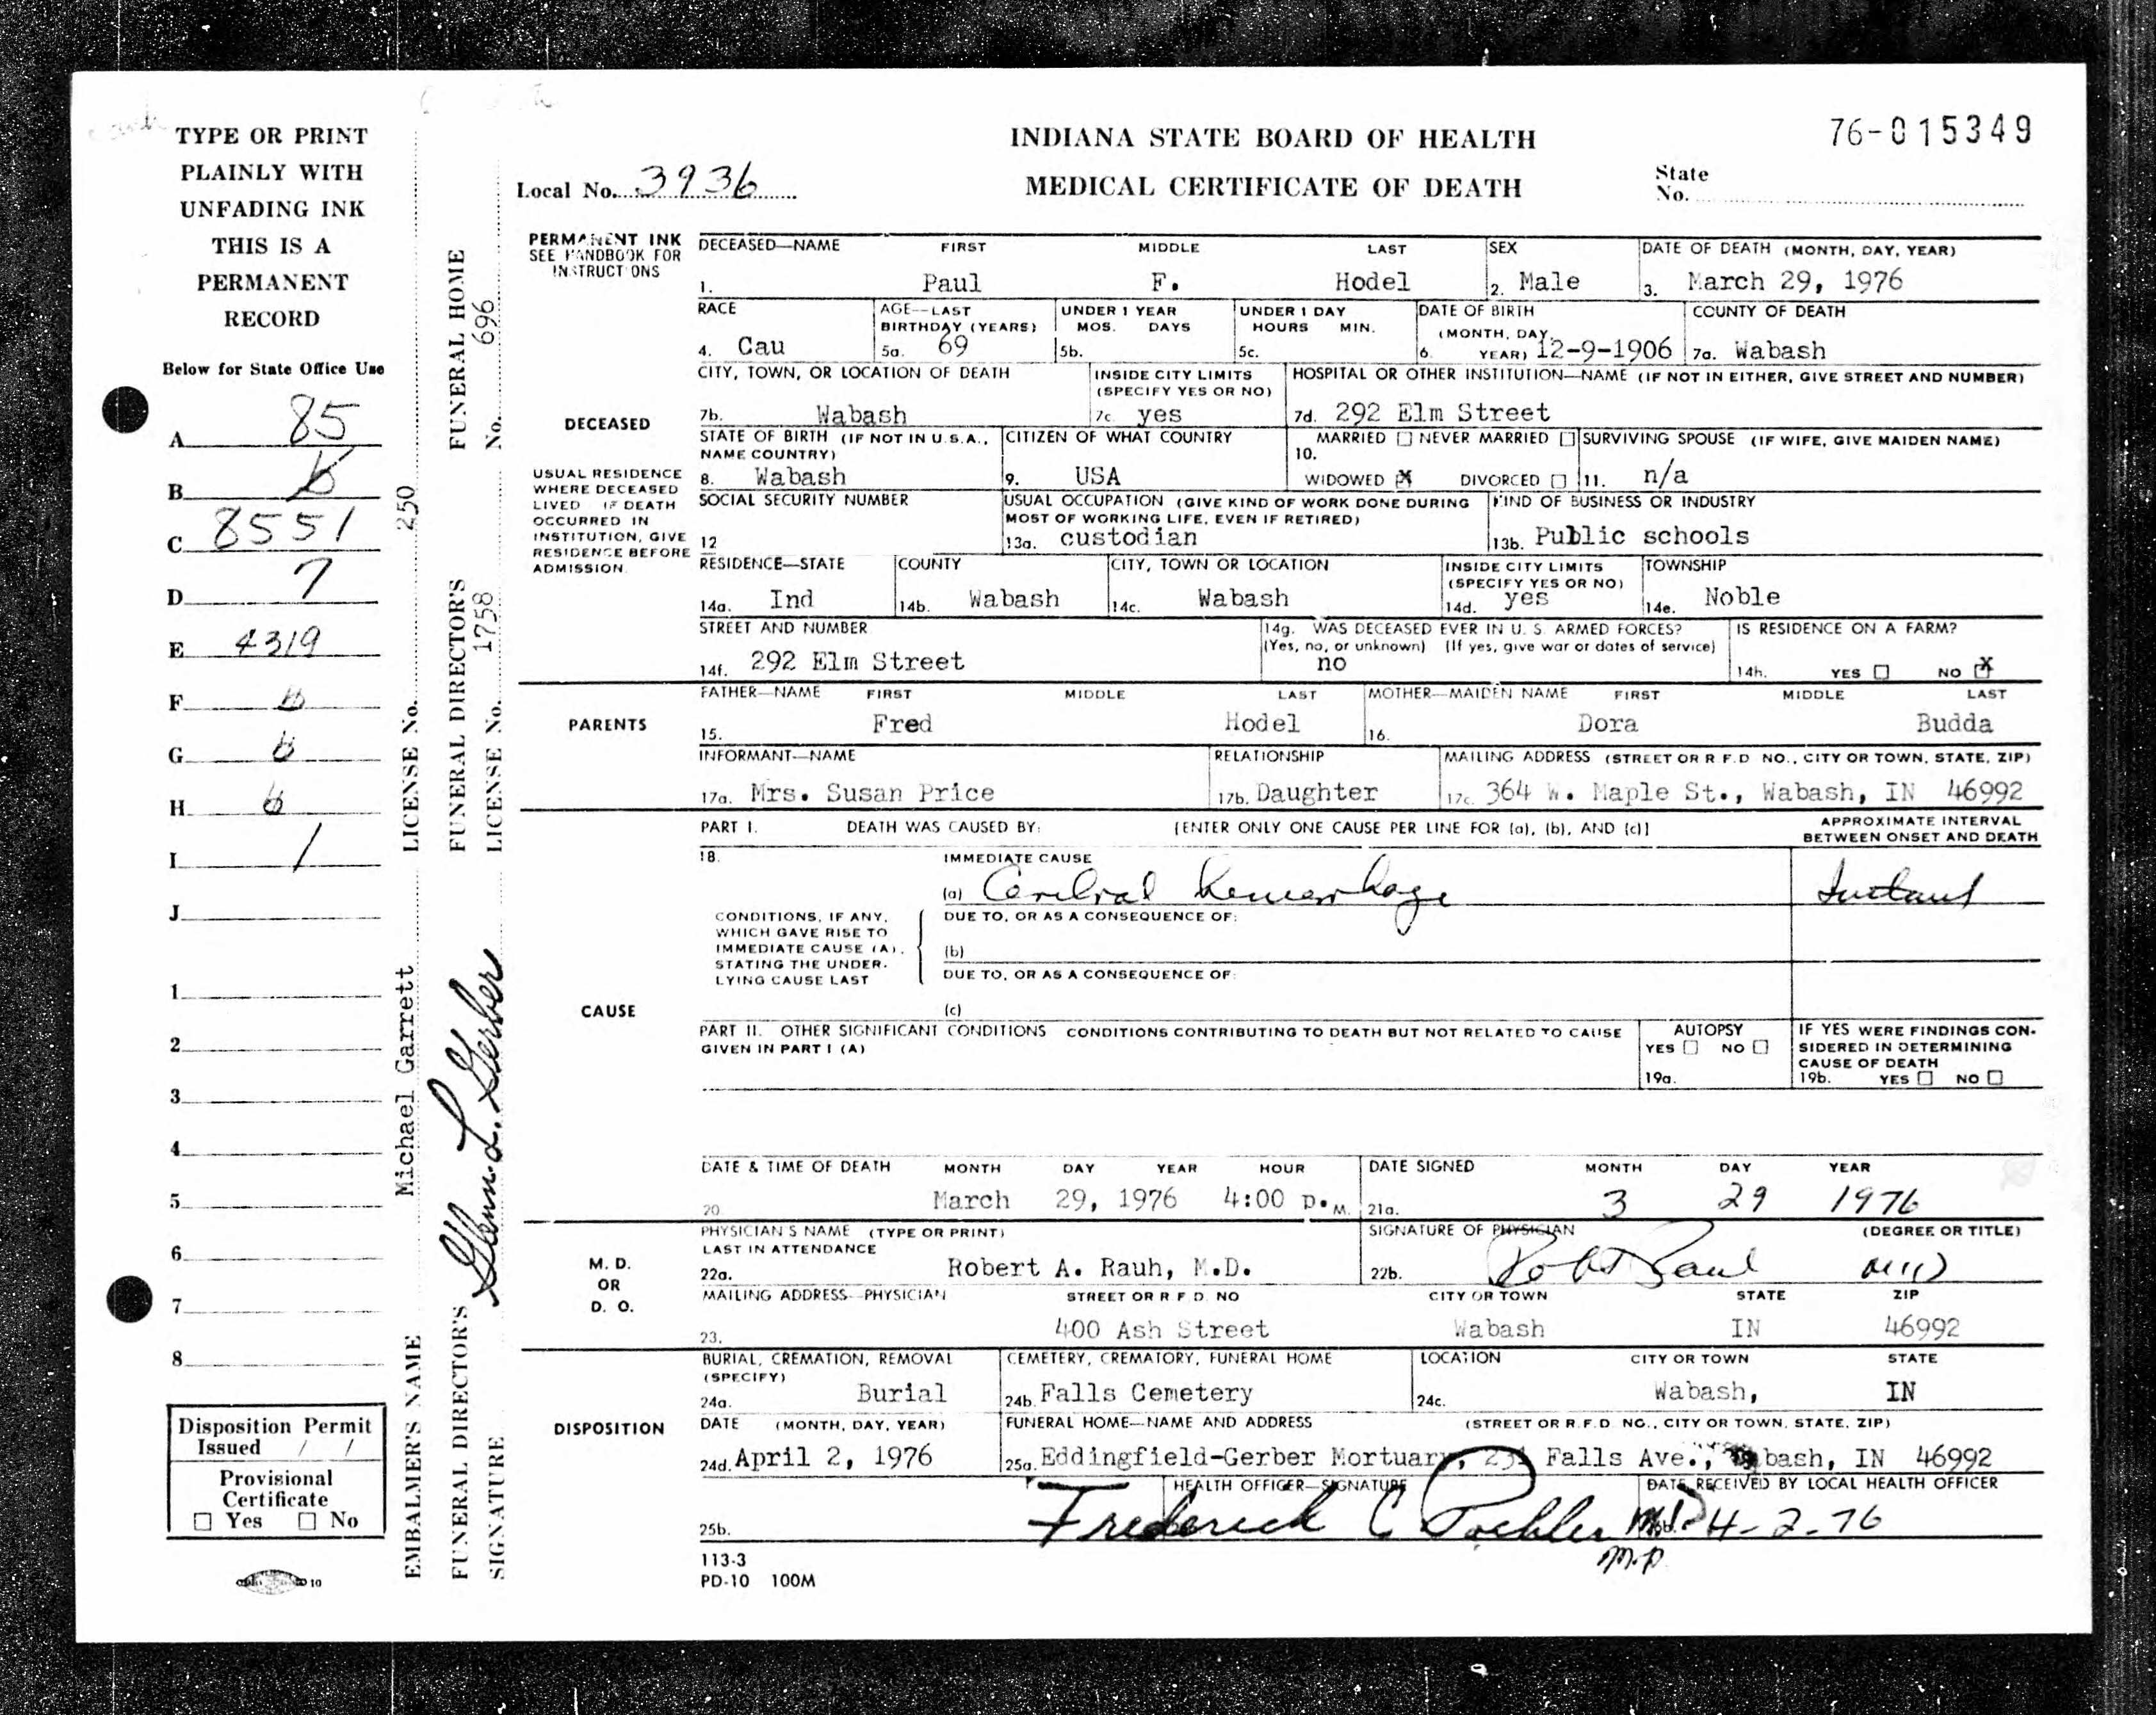 INDIANA STATE BOARD OF HEALTH
MEDICAL CERTIFICATE OF DEATH
76-015349
State
No.
Local No. 3936
TYPE OR PRINT
PLAINLY WITH
UNFADING INK
THIS IS A
PERMANENT
RECORD
Below for State Office Use
A 85
B
C 8551
D 7
E 4319
F
G
H
I 1
J
1
2
3
4
5
6
7
8
Disposition Permit
Issued / /
Provisional
Certificate
☐ Yes ☐ No
EMBALMER'S NAME Michael Garrett LICENSE No. 250
FUNERAL DIRECTOR'S SIGNATURE Glenn L. Gerber
FUNERAL DIRECTOR'S LICENSE No. 1758
FUNERAL HOME No. 696
PERMANENT INK
SEE HANDBOOK FOR
INSTRUCTIONS
DECEASED—NAME FIRST MIDDLE LAST SEX DATE OF DEATH (MONTH, DAY, YEAR)
1. Paul F. Hodel 2. Male 3. March 29, 1976
RACE AGE—LAST UNDER 1 YEAR UNDER 1 DAY DATE OF BIRTH COUNTY OF DEATH
BIRTHDAY (YEARS) MOS. DAYS HOURS MIN. (MONTH, DAY,
4. Cau 5a. 69 5b. 5c. 6. YEAR) 12-9-1906 7a. Wabash
CITY, TOWN, OR LOCATION OF DEATH INSIDE CITY LIMITS HOSPITAL OR OTHER INSTITUTION—NAME (IF NOT IN EITHER, GIVE STREET AND NUMBER)
(SPECIFY YES OR NO)
DECEASED
7b. Wabash 7c. yes 7d. 292 Elm Street
STATE OF BIRTH (IF NOT IN U.S.A., CITIZEN OF WHAT COUNTRY MARRIED ☐ NEVER MARRIED ☐ SURVIVING SPOUSE (IF WIFE, GIVE MAIDEN NAME)
NAME COUNTRY) 10.
8. Wabash 9. USA WIDOWED ☒ DIVORCED ☐ 11. n/a
USUAL RESIDENCE
WHERE DECEASED
LIVED IF DEATH
OCCURRED IN
INSTITUTION, GIVE
RESIDENCE BEFORE
ADMISSION.
SOCIAL SECURITY NUMBER USUAL OCCUPATION (GIVE KIND OF WORK DONE DURING KIND OF BUSINESS OR INDUSTRY
MOST OF WORKING LIFE, EVEN IF RETIRED)
12 13a. custodian 13b. Public schools
RESIDENCE—STATE COUNTY CITY, TOWN OR LOCATION INSIDE CITY LIMITS TOWNSHIP
(SPECIFY YES OR NO)
14a. Ind 14b. Wabash 14c. Wabash 14d. yes 14e. Noble
STREET AND NUMBER 14g. WAS DECEASED EVER IN U. S. ARMED FORCES? IS RESIDENCE ON A FARM?
(Yes, no, or unknown) (If yes, give war or dates of service)
14f. 292 Elm Street no 14h. YES ☐ NO ☒
PARENTS
FATHER—NAME FIRST MIDDLE LAST MOTHER—MAIDEN NAME FIRST MIDDLE LAST
15. Fred Hodel 16. Dora Budda
INFORMANT—NAME RELATIONSHIP MAILING ADDRESS (STREET OR R.F.D NO., CITY OR TOWN, STATE, ZIP)
17a. Mrs. Susan Price 17b. Daughter 17c. 364 W. Maple St., Wabash, IN 46992
PART I. DEATH WAS CAUSED BY: [ENTER ONLY ONE CAUSE PER LINE FOR (a), (b), AND (c)] APPROXIMATE INTERVAL
BETWEEN ONSET AND DEATH
18. IMMEDIATE CAUSE
(a) Cerebral hemorrhage Instant
CONDITIONS, IF ANY,
WHICH GAVE RISE TO
IMMEDIATE CAUSE (A),
STATING THE UNDER-
LYING CAUSE LAST
DUE TO, OR AS A CONSEQUENCE OF:
(b)
DUE TO, OR AS A CONSEQUENCE OF:
(c)
CAUSE
PART II. OTHER SIGNIFICANT CONDITIONS CONDITIONS CONTRIBUTING TO DEATH BUT NOT RELATED TO CAUSE
GIVEN IN PART I (A)
AUTOPSY
YES ☐ NO ☐
19a.
IF YES WERE FINDINGS CON-
SIDERED IN DETERMINING
CAUSE OF DEATH
19b. YES ☐ NO ☐
DATE & TIME OF DEATH MONTH DAY YEAR HOUR DATE SIGNED MONTH DAY YEAR
20. March 29, 1976 4:00 p.M. 21a. 3 29 1976
M. D.
OR
D. O.
PHYSICIAN'S NAME (TYPE OR PRINT) SIGNATURE OF PHYSICIAN (DEGREE OR TITLE)
LAST IN ATTENDANCE
22a. Robert A. Rauh, M.D. 22b. Robt Rauh MD
MAILING ADDRESS—PHYSICIAN STREET OR R.F.D. NO CITY OR TOWN STATE ZIP
23. 400 Ash Street Wabash IN 46992
DISPOSITION
BURIAL, CREMATION, REMOVAL CEMETERY, CREMATORY, FUNERAL HOME LOCATION CITY OR TOWN STATE
(SPECIFY)
24a. Burial 24b. Falls Cemetery 24c. Wabash, IN
DATE (MONTH, DAY, YEAR) FUNERAL HOME—NAME AND ADDRESS (STREET OR R.F.D. NO., CITY OR TOWN, STATE, ZIP)
24d. April 2, 1976 25a. Eddingfield-Gerber Mortuary, Falls Ave., Wabash, IN 46992
HEALTH OFFICER—SIGNATURE DATE RECEIVED BY LOCAL HEALTH OFFICER
25b. Frederick C Poehler M.D. 4-2-76
M.D.
113-3
PD-10 100M